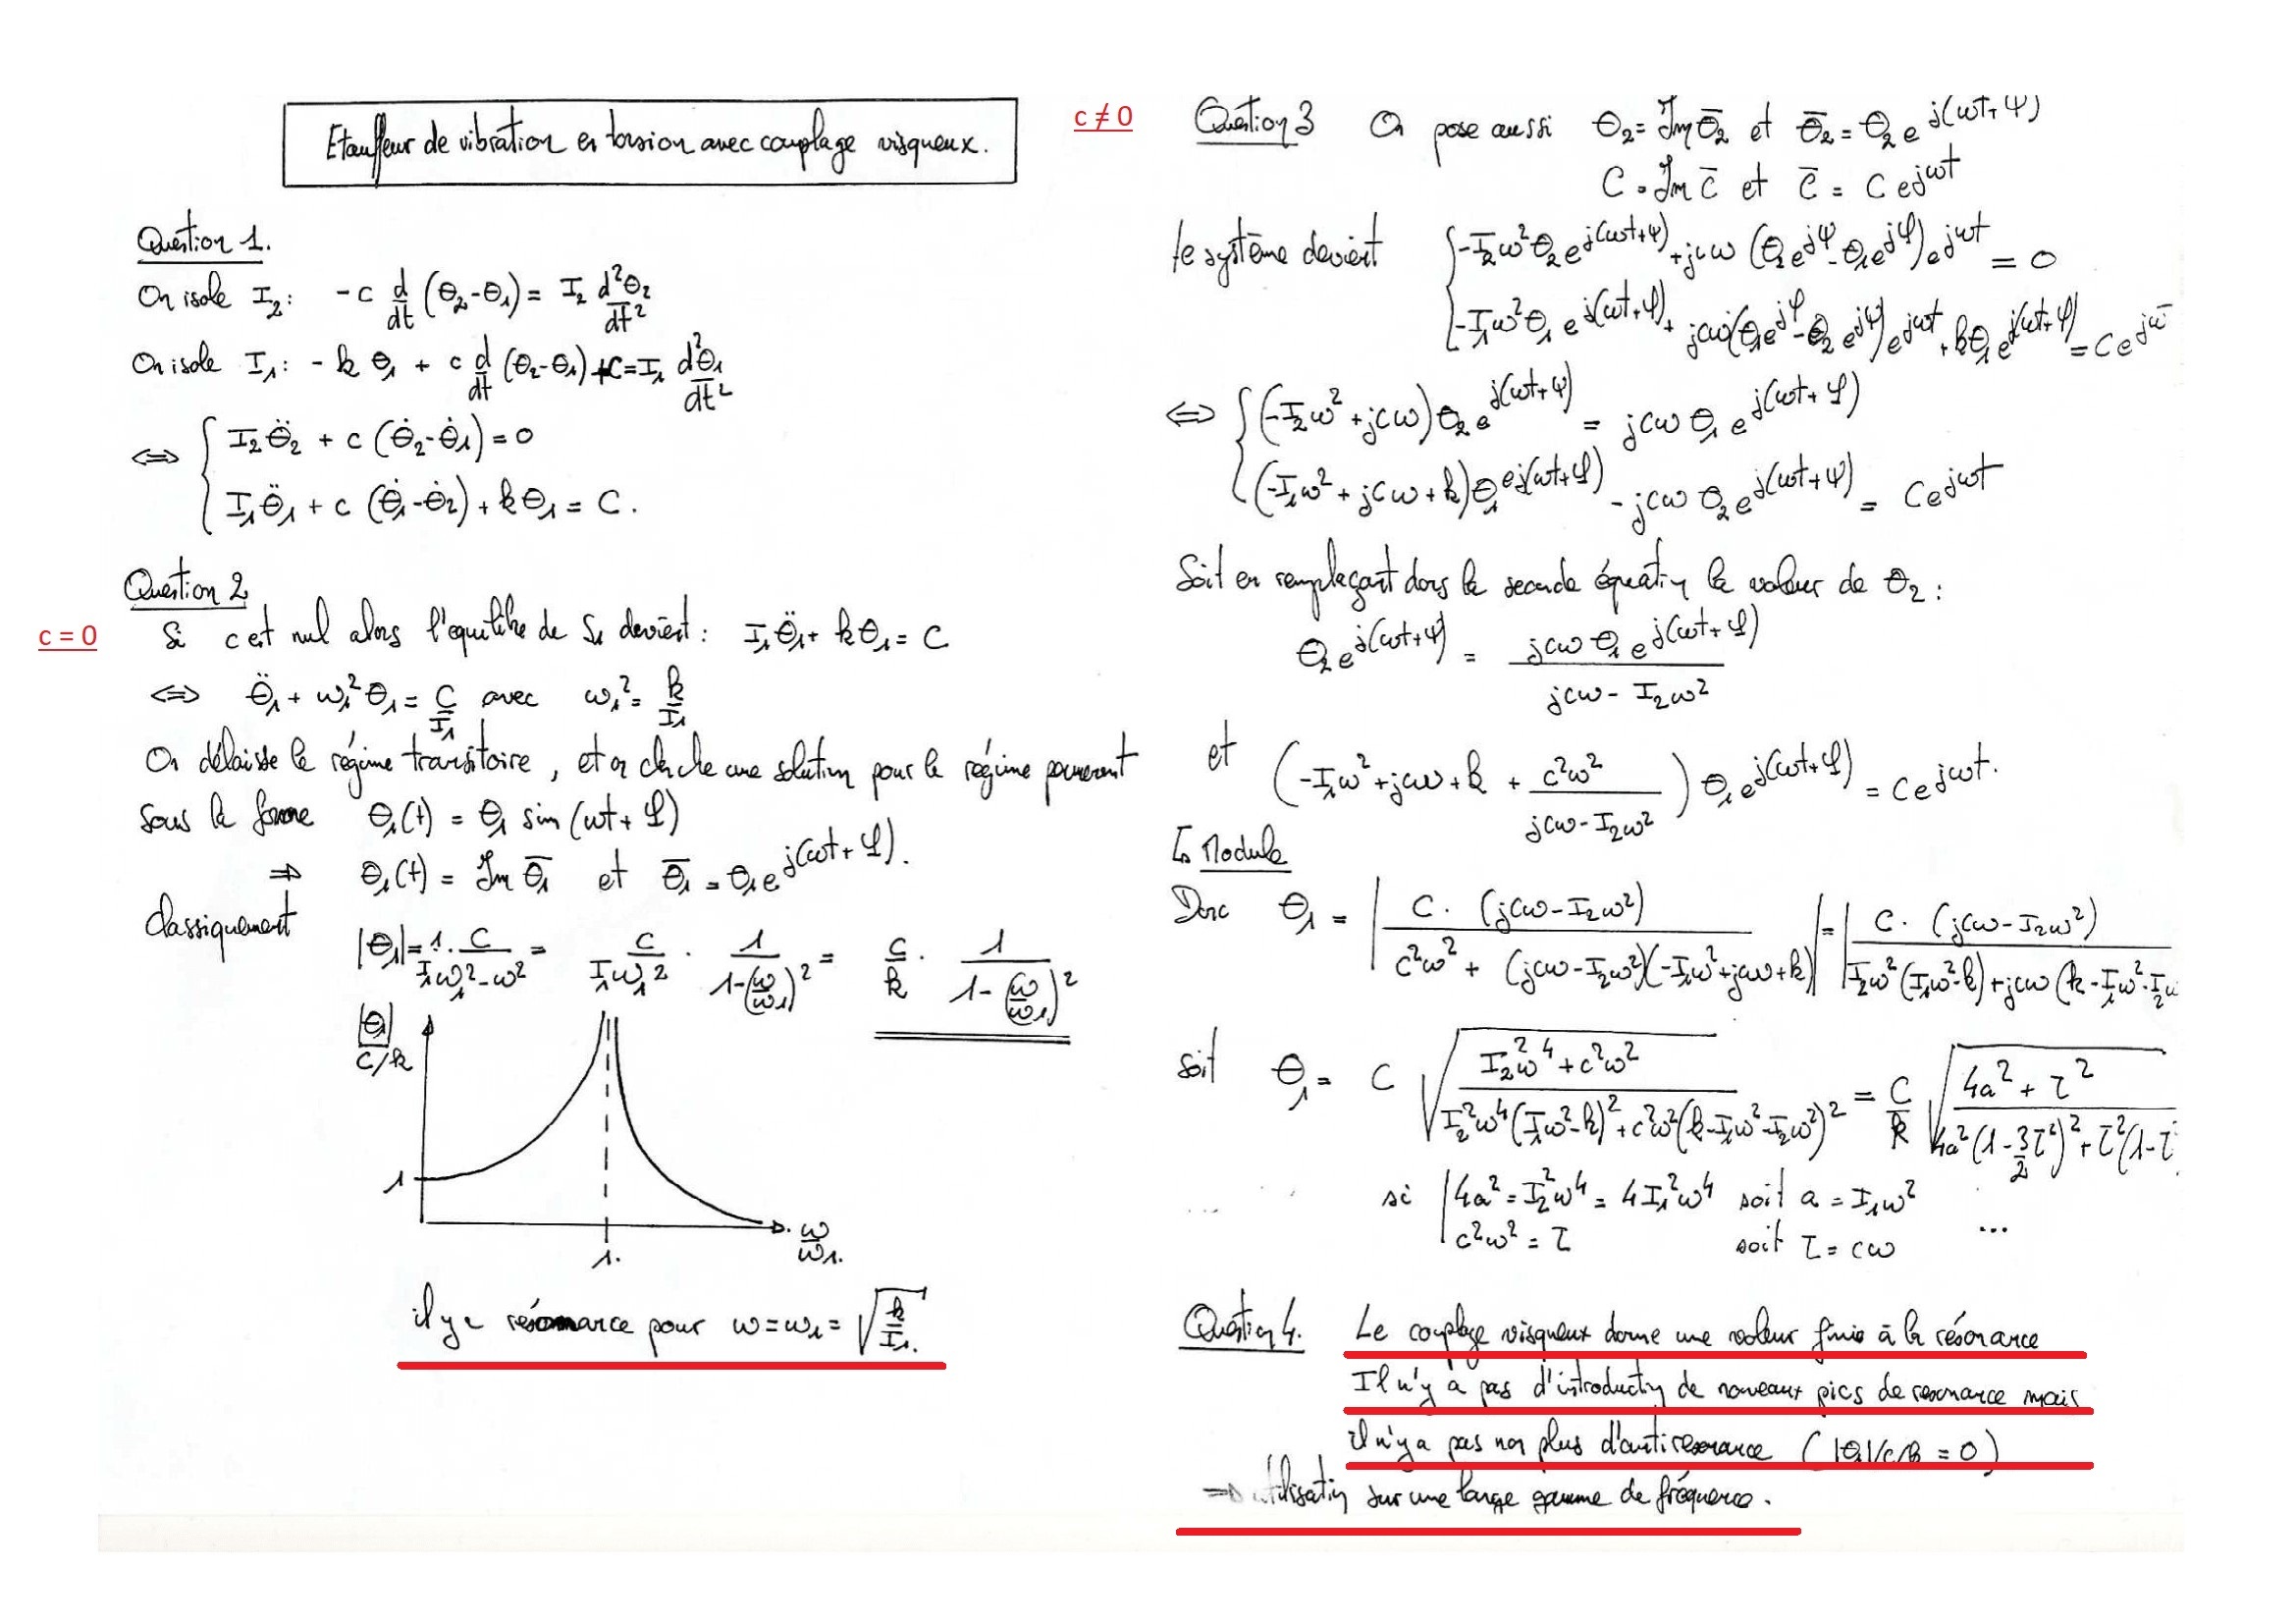 Etouffeur de vibration en torsion avec couplage visqueux.
Question 1.
On isole I₂: -c d/dt (θ₂-θ₁) = I₂ d²θ₂/dt²
On isole I₁: -k θ₁ + c d/dt (θ₂-θ₁) + C = I₁ d²θ₁/dt²
⇔ { I₂θ̈₂ + c (θ̇₂-θ̇₁) = 0
I₁θ̈₁ + c (θ̇₁-θ̇₂) + kθ₁ = C.
Question 2
c = 0
Si c est nul alors l'équilibre de S₁ devient: I₁θ̈₁ + kθ₁ = C
⇔ θ̈₁ + ω₁²θ₁ = C/I₁ avec ω₁² = k/I₁
On délaisse le régime transitoire, et on cherche une solution pour le régime permanent
sous la forme θ₁(t) = θ₁ sin(ωt + φ)
⇒ θ₁(t) = Im θ̄₁ et θ̄₁ = θ₁ e^j(ωt+φ).
Classiquement
|θ₁| = 1/(I₁ω₁²-ω²) · C = C/(I₁ω₁²) · 1/(1-(ω/ω₁)²) = C/k · 1/(1-(ω/ω₁)²)
|θ₁|/(C/k)
1
1.
ω/ω₁.
il y a résonance pour ω = ω₁ = √(k/I₁).
c ≠ 0
Question 3 On pose aussi θ₂ = Im θ̄₂ et θ̄₂ = θ₂ e^j(ωt+ψ)
C = Im C̄ et C̄ = C e^jωt
le système devient { -I₂ω²θ₂ e^j(ωt+ψ) + jcω (θ₂e^jψ - θ₁e^jφ) e^jωt = 0
-I₁ω²θ₁ e^j(ωt+φ) + jcω(θ₁e^jφ - θ₂e^jψ) e^jωt + kθ₁e^j(ωt+φ) = C e^jω
⇔ { (-I₂ω² + jcω) θ₂ e^j(ωt+ψ) = jcω θ₁ e^j(ωt+φ)
(-I₁ω² + jcω + k) θ₁ e^j(ωt+φ) - jcω θ₂ e^j(ωt+ψ) = C e^jωt
Soit en remplaçant dans la seconde équation la valeur de θ₂ :
θ₂ e^j(ωt+ψ) = jcω θ₁ e^j(ωt+φ) / (jcω - I₂ω²)
et (-I₁ω² + jcω + k + c²ω²/(jcω - I₂ω²)) θ₁ e^j(ωt+φ) = C e^jωt.
↳ Module
Donc θ₁ = | C. (jcω - I₂ω²) / (c²ω² + (jcω - I₂ω²)(-I₁ω² + jcω + k)) | = | C. (jcω - I₂ω²) / (I₂ω²(I₁ω²-k) + jcω (k - I₁ω² - I₂ω
soit θ₁ = C √((I₂²ω⁴ + c²ω²) / (I₂²ω⁴(I₁ω²-k)² + c²ω²(k-I₁ω²-I₂ω²)²)) = C/k √((4a² + τ²) / (4a²(1-3/2τ²)² + τ²(1-τ
si | 4a² = I₂²ω⁴ = 4I₁²ω⁴ soit a = I₁ω²
c²ω² = τ soit τ = cω ...
Question 4. Le couplage visqueux donne une valeur finie à la résonance
Il n'y a pas d'introduction de nouveaux pics de resonance mais
il n'y a pas non plus d'antiresonance ( |θ₁|/c/k = 0 )
⇒ utilisation sur une large gamme de fréquence.